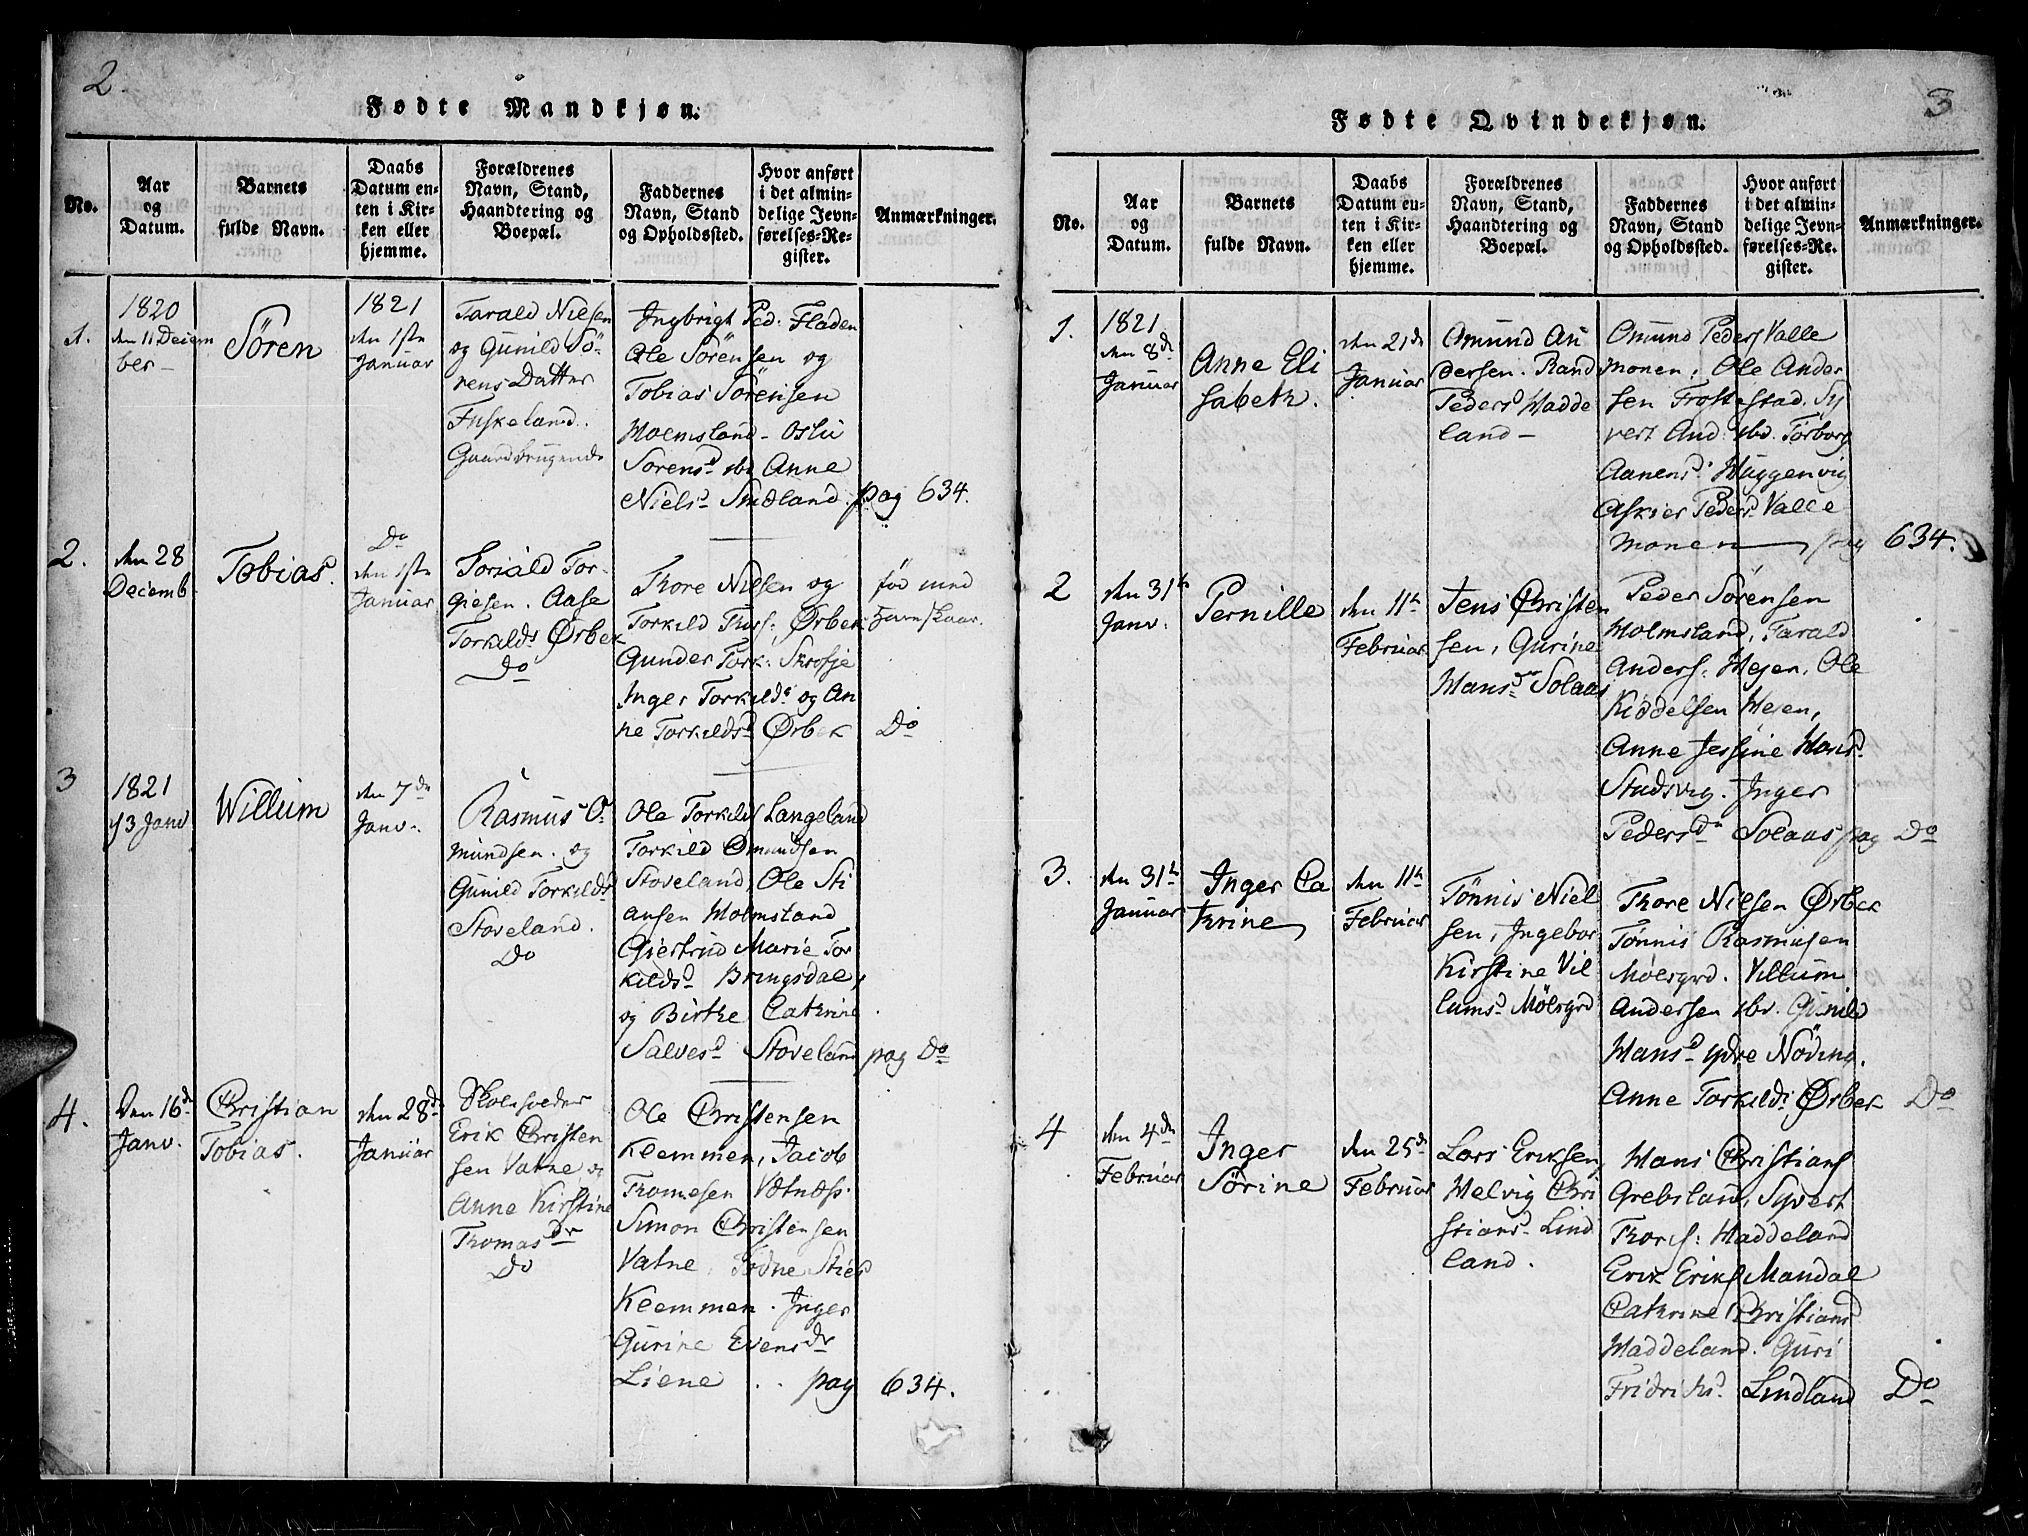 2.
Fødte Mandkjøn.
No.
Aar
og
Datum.
Barnets
fulde Navn.
Daabs
Datum en-
ten i Kir-
ken eller
hjemme.
Forældrenes
Navn, Stand,
Haandtering og
Boepæl.
Faddernes
Navn, Stand
og Opholdssted.
Hvor anført
i det almin-
delige Jevn-
førelses-Re-
gister.
Anmærkninger.
1.
1820
den 11 Decem
ber
Sören
1821
den 1ste
Januar
Tarald Nielsen
og Gunild Sö-
rens Datter
Fuskeland.
Gaardbrugende
Ingbrigt Ped: Fladen
Ole Sörensen og
Tobias Sörensen
Holmsland - Osli
Sörensd. ibd Anne
Nielsd. Sndland. pag 634.
2.
den 28
Decemb
Tobias.
Do
den 1ste
Januar
Toriald Tor-
giesen. Aase
Torkilds Ørbek
Do
Thore Nielsen og
Torkild Thors: Ørbek
Gunder Tork: Skrosje
Inger Torkilds og An
ne Torkildsd Ørbek
før med
Do
3
1821
d 3 Janv
Willum
den 7de
Janv.
Rasmus O
mundsen. og
Gunild Torkilds
Stoveland.
Do
Ole Torkilds Langeland
Torkild Omundsen
Stoveland, Ole Sti
ansen Holmstand
Giertrud Marie Tor
kildsd Bringsdal,
og Birthe Cathrine
Salvesd Stoveland pag Do
4.
Den 16de
Janv.
Christian
Tobias.
den 28de
Januar
Skoleholder
Erik Christen
sen Vatne og
Anne Kirstine
Thomasdr
Do
Ole Christensen
Kleemmen, Jacob
Thomesen Vatness.
Simon Christensen
Vatne, Todne Stied
Kleemmen. Inger
Gurine Evensdr
Liene .. pag 634.
3
Fødte Qvindekjøn.
No.
Aar
og
Datum.
Barnets
fulde Navn.
Daabs
Datum en-
ten i Kir-
ken eller
hjemme.
Forældrenes
Navn, Stand,
Haandtering og
Boepæl.
Faddernes
Navn, Stand
og Opholdssted.
Hvor anført
i det almin-
delige Jevn-
førelses-Re-
gister.
Anmærkninger.
1.
1821
den 8de
Januar
Anne Eli
sabeth.
den 21de
Januar
Omund An
dersen. Rand
Pedersd Hadde
land
Omund Peders Valle
monen, Ole Ander
sen Frostestad. Sy
vert And: ibd. Torborg
Aanensd: Huggenvig
Askier Pedersd Valle
monen pag 634.
2
den 31te
Janv.
Pernille
den 11te
Februar
Jens Christen
sen, Gurine
Hansd Solaas
Peder Sörensen
Holmsland, Tarald
Anders: Hejen, Ole
Kiddelsen Hejen,
Anne Jessine Hansd.
Stadsvig. Inger
Pedersd Solaas pag Do
3.
den 31te
Januar
Inger Ca
thrine
den 11te
Februar
Tönnis Niel
sen, Ingebor
Kirstine Vil
lumsd Mölergrd
Thore Nielsen Ørbek
Tönnis Rasmusen
Mölergrd. Villum
Andersen ibd. Gunild
Hansd ydre Nöding.
Anne Torkilds Ørbek Do
4
den 4de
Februar
Inger
Sörine
den 25de
Februar
Lars Eriksen
Helvig Chri
stiansd Lind
land.
Hans Christians
Grebsland, Syvert
Thors: Haddeland
Erik Eriks Mandal
Cathrine Christiansd
Haddeland. Guri
Fridriksd. Lindland Do